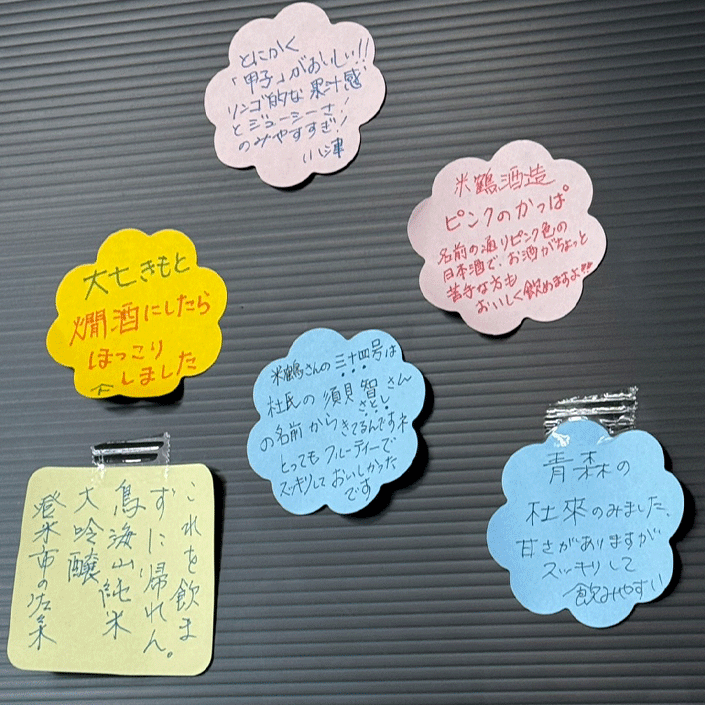 とにかく
「甲子」がおいしい!!
リンゴ的な果汁感
とジューシーさ!
のみやすすぎ!
小津
米鶴酒造
ピンクのかっぱ
名前の通りピンク色の
日本酒で、お酒がちょっと
苦手な方も
おいしく飲めますよ!!
大七きもと
燗酒にしたら
ほっこり
しました
米鶴さんの三十四号は
杜氏の須貝智さん
さとし
の名前からきてるんですネ
とってもフルーティーで
スッキリしておいしかった
です
青森の
杜來のみました、
甘さがありますが
スッキリして
飲みやすい
これを飲ま
ずに帰れん。
鳥海山純米
大吟醸
登米市の佐々木